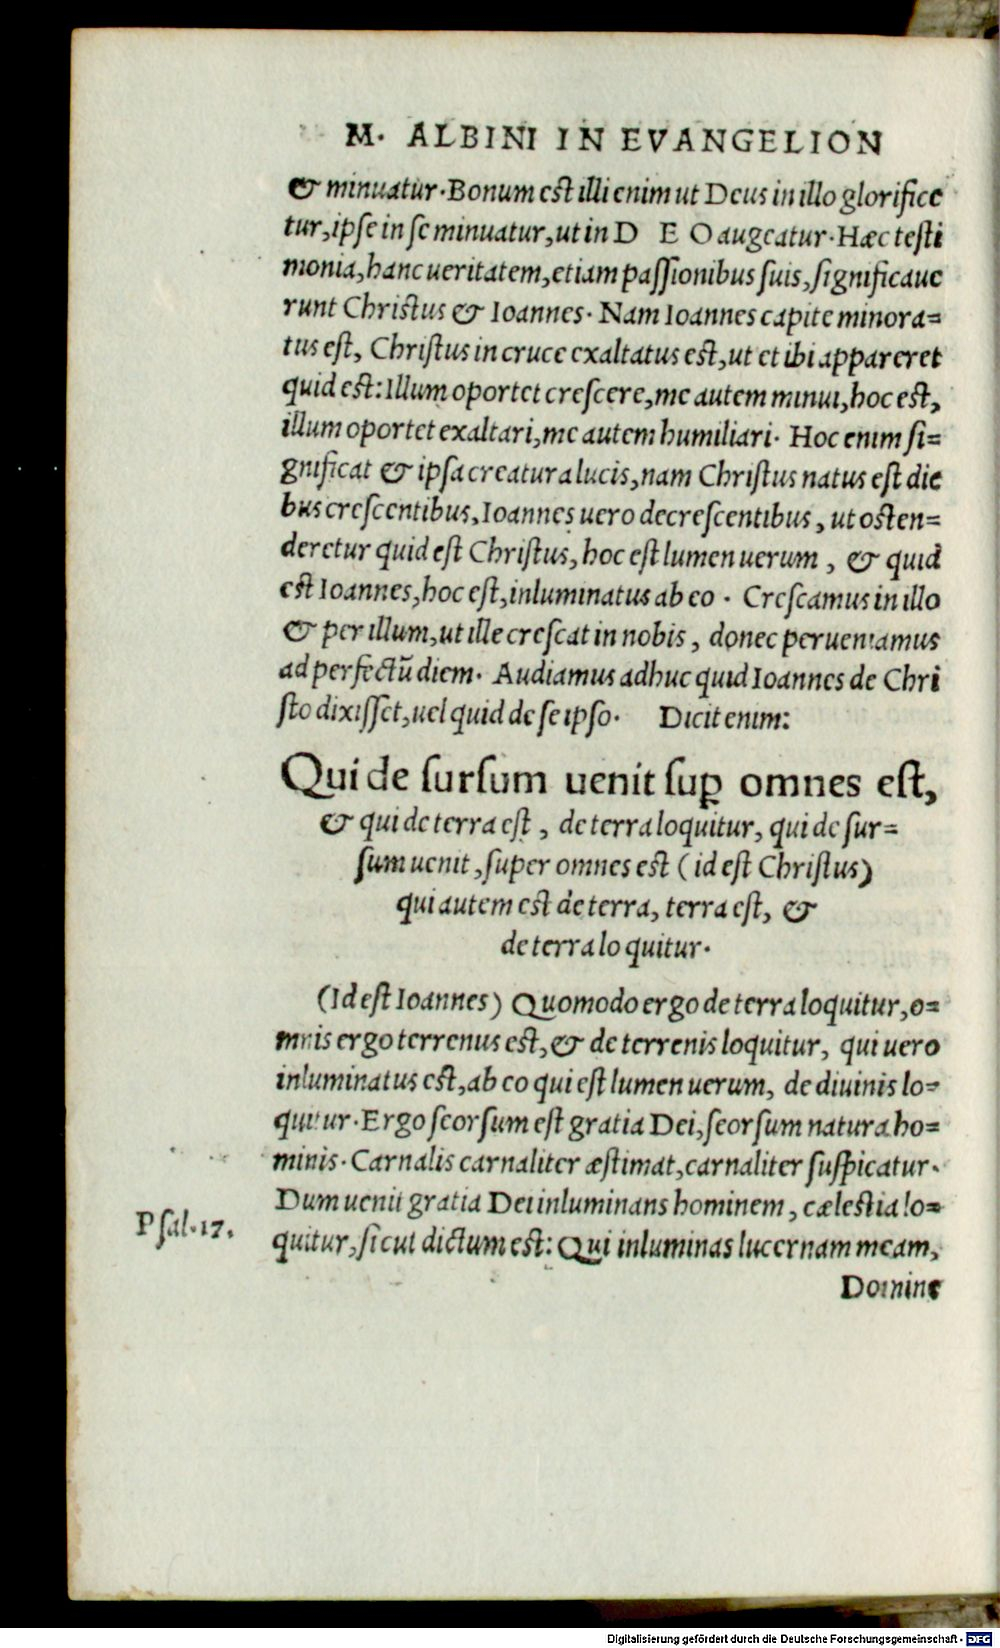 M. ALBINI IN EVANGELION
& minuatur. Bonum est illi enim ut Deus in illo glorifice
tur, ipse in se minuatur, ut in D E O augeatur. Hæc testi
monia, hanc ueritatem, etiam passionibus suis, significaue
runt Christus & Ioannes. Nam Ioannes capite minora=
tus est, Christus in cruce exaltatus est, ut et ibi appareret
quid est: Illum oportet crescere, me autem minui, hoc est,
illum oportet exaltari, me autem humiliari. Hoc enim si=
gnificat & ipsa creatura lucis, nam Christus natus est die
bus crescentibus, Ioannes uero decrescentibus, ut osten=
deretur quid est Christus, hoc est lumen uerum, & quid
est Ioannes, hoc est, inluminatus ab eo. Crescamus in illo
& per illum, ut ille crescat in nobis, donec perueniamus
ad perfectũ diem. Audiamus adhuc quid Ioannes de Chri
sto dixisset, uel quid de se ipso. Dicit enim:
Qui de sursum uenit suꝑ omnes est,
& qui de terra est, de terra loquitur, qui de sur=
sum uenit, super omnes est (id est Christus)
qui autem est de terra, terra est, &
de terra loquitur.
(Id est Ioannes) Quomodo ergo de terra loquitur, o=
mnis ergo terrenus est, & de terrenis loquitur, qui uero
inluminatus est, ab eo qui est lumen uerum, de diuinis lo=
quitur. Ergo seorsum est gratia Dei, seorsum natura ho=
minis. Carnalis carnaliter æstimat, carnaliter suspicatur.
Dum uenit gratia Dei inluminans hominem, cælestia lo=
Psal. 17.
quitur, sicut dictum est: Qui inluminas lucernam meam,
Domine
Digitalisierung gefördert durch die Deutsche Forschungsgemeinschaft - DFG